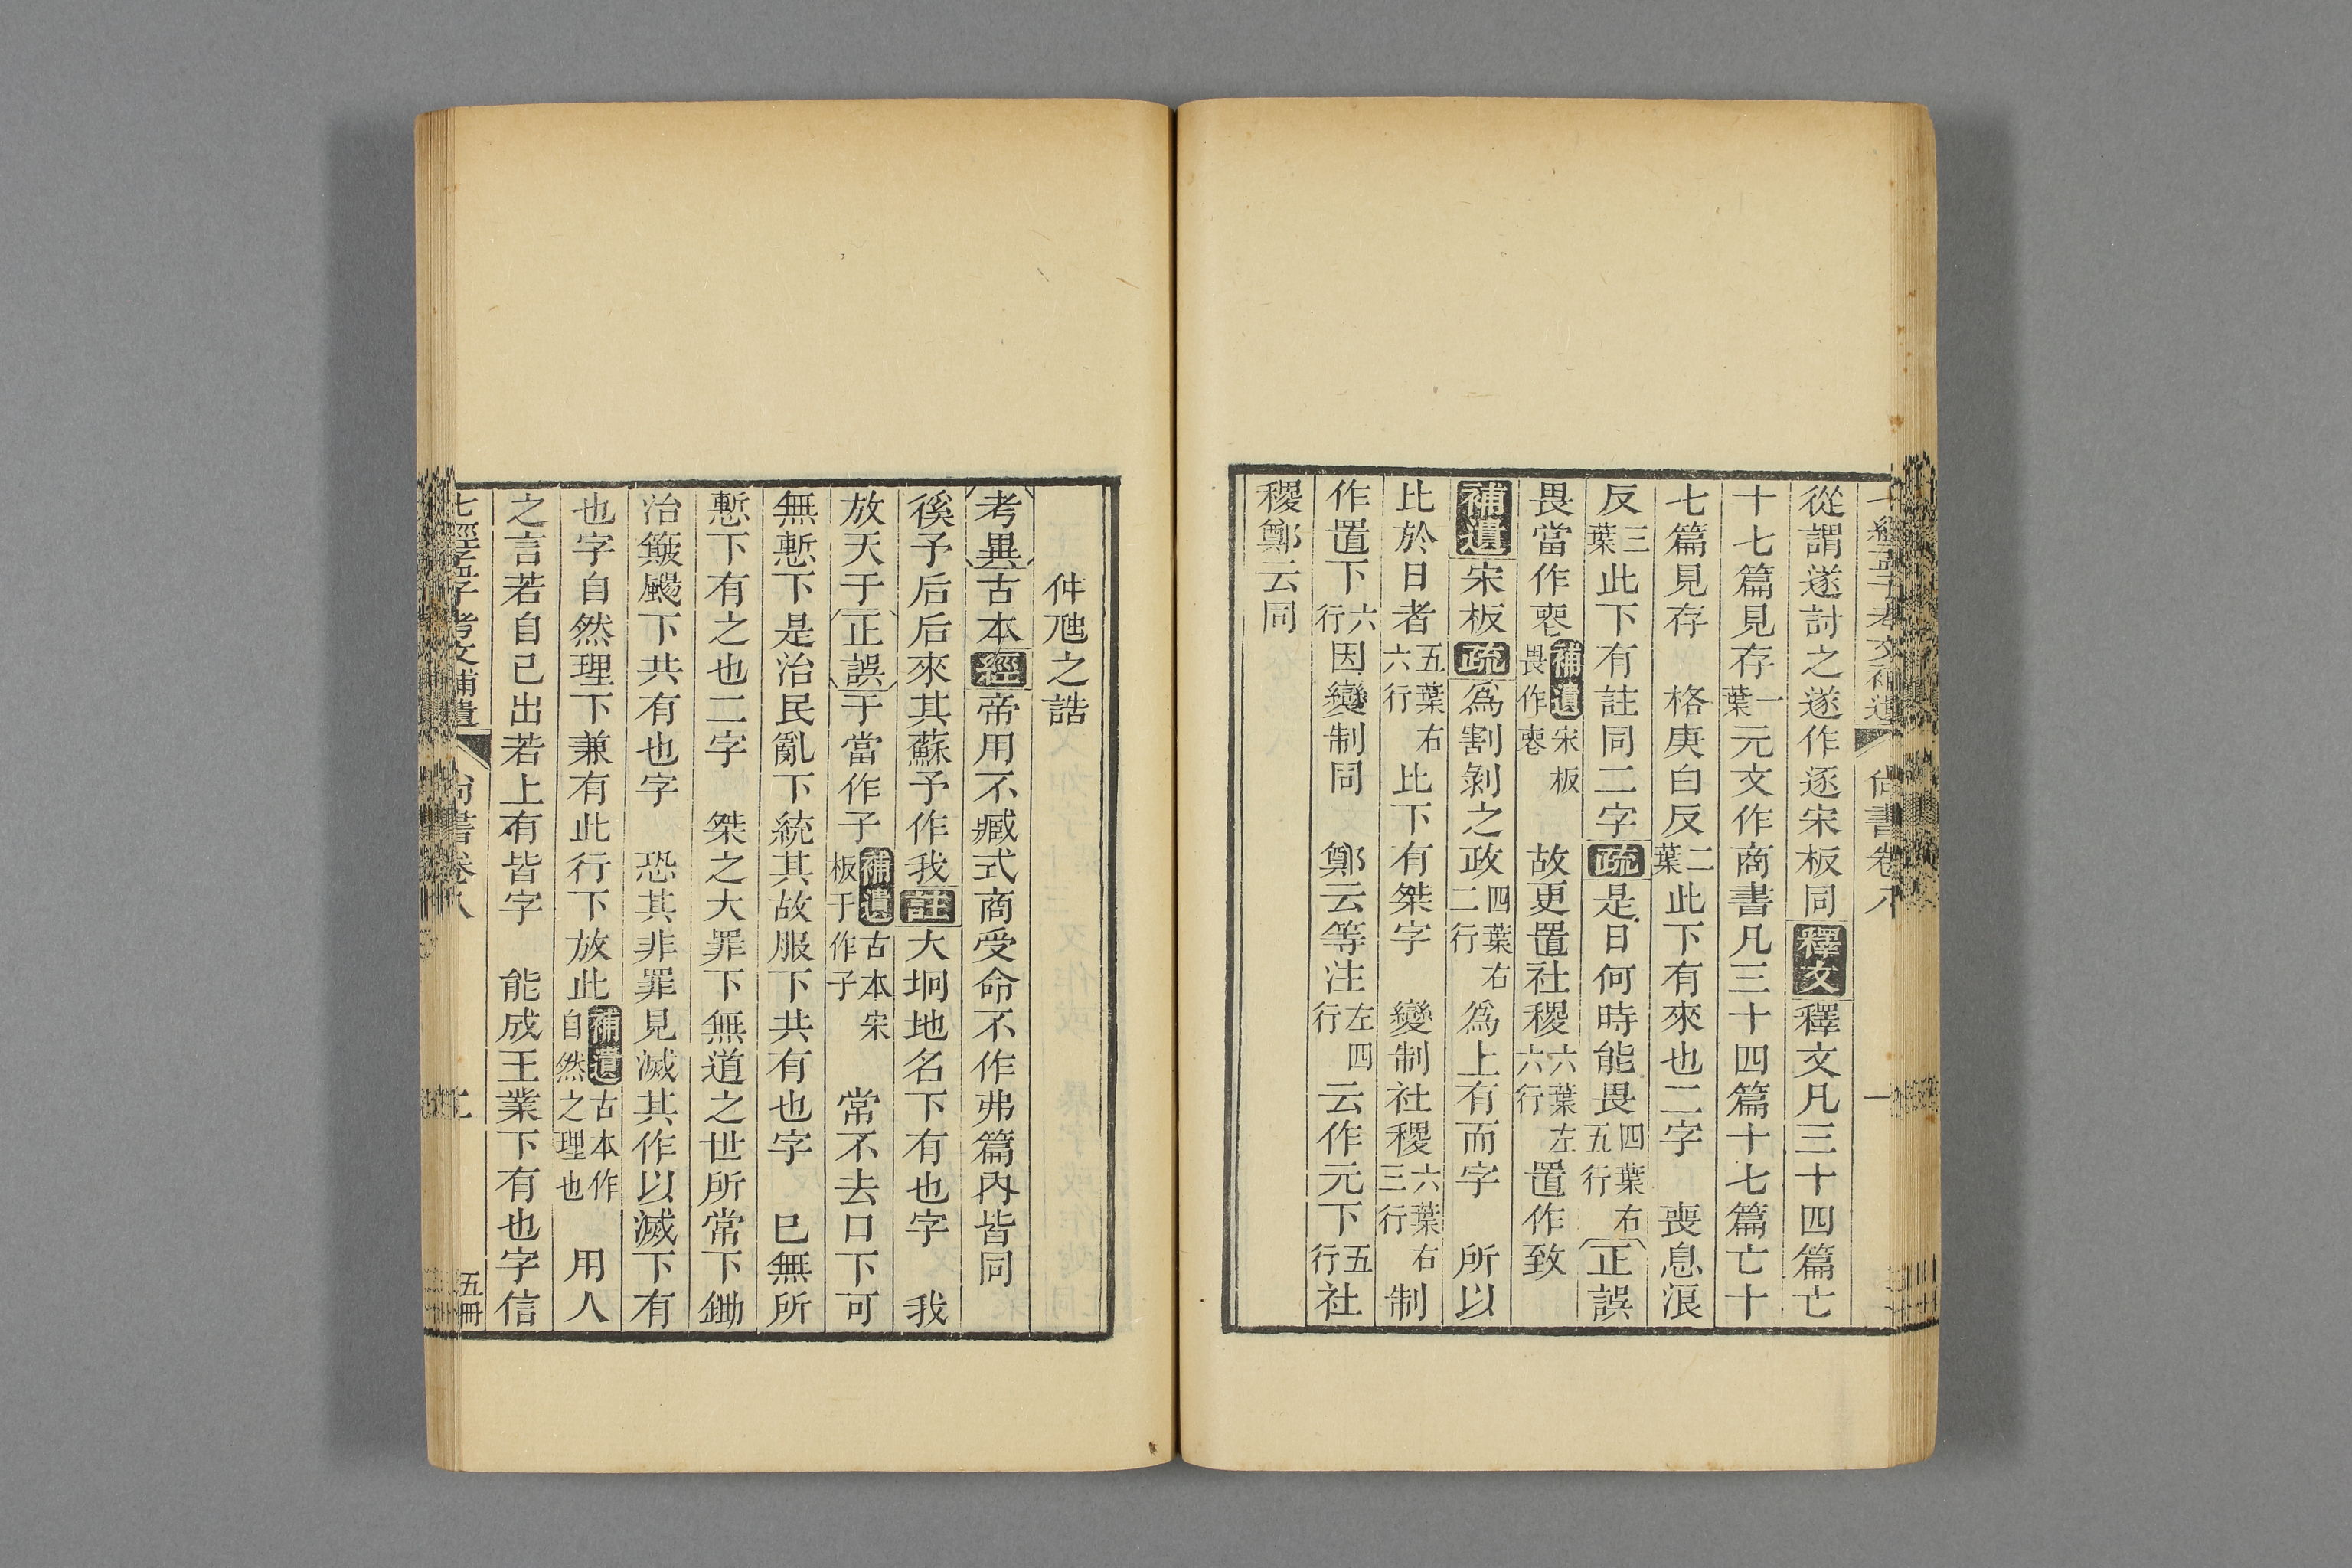 七經孟子考文補遺 尚書卷八 一
從謂遂討之遂作逐宋板同釋文釋文凡三十四篇亡
十七篇見存一葉元文作商書凡三十四篇十七篇亡十
七篇見存 格庚白反二葉此下有來也二字 喪息浪
反三葉此下有註同二字疏是日何時能畏四葉右五行正誤
畏當作喪補遺宋板畏作喪 故更置社稷六葉左六行置作致
補遺宋板疏爲割剝之政四葉右二行爲上有而字 所以
比於日者五葉右六行比下有桀字 變制社稷六葉右三行制
作置下六行因變制同 鄭云等注左四行云作元下五行社
稷鄭云同
仲虺之誥
考異古本經帝用不臧式商受命不作弗篇內皆同
徯予后后來其蘇予作我註大坰地名下有也字 我
放天于正誤于當作子補遺古本宋板于作子 常不去口下可
無慙下是治民亂下統其故服下共有也字 巳無所
慙下有之也二字 桀之大罪下無道之世所常下鋤
治簸颺下共有也字 恐其非罪見滅其作以滅下有
也字自然理下兼有此行下放此補遺古本作自然之理也 用人
之言若自己出若上有皆字 能成王業下有也字信
七經孟子考文補遺 尚書卷八 二 五冊